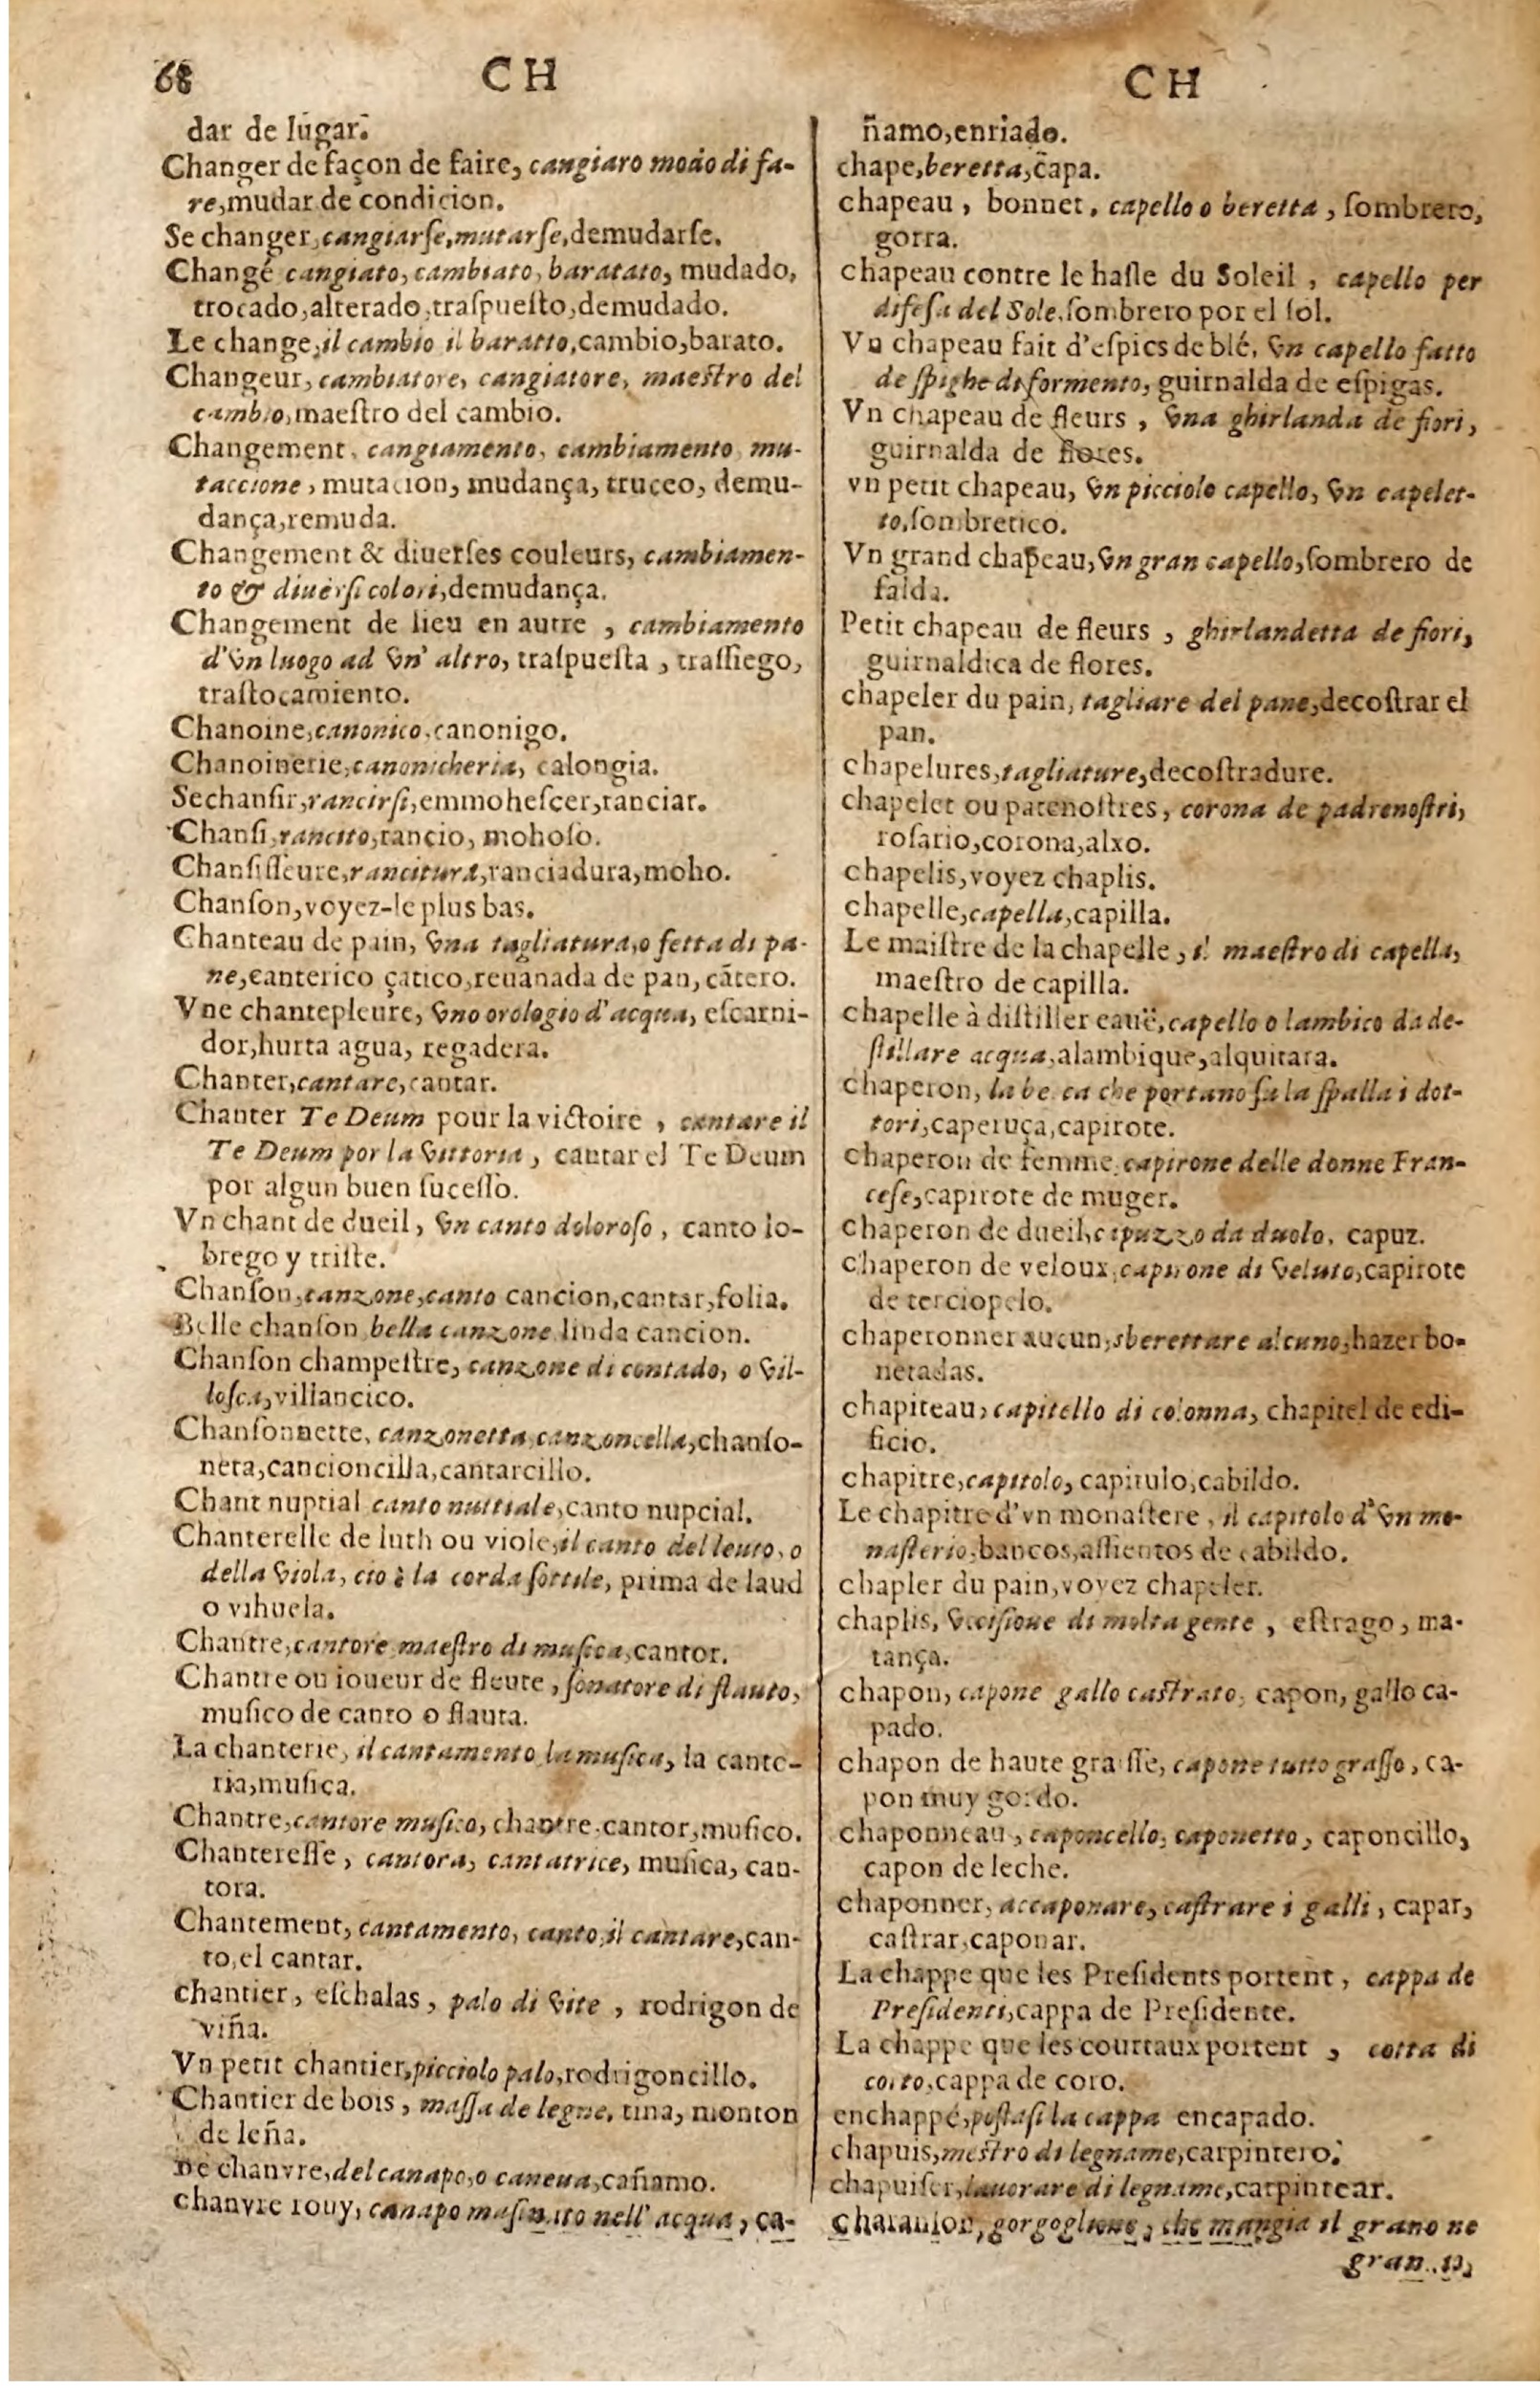 68 CH CH
dar de lugar.
Changer de façon de faire, cangiaro modo di fa-
re,mudar de condicion.
Se changer,cangiarſe,mutarſe,demudarſe.
Changé cangiato, cambiato, baratato, mudado,
trocado,alterado,traſpueſto,demudado.
Le change,il cambio il baratto,cambio,barato.
Changeur, cambiatore, cangiatore, maeſtro del
cambio,maeſtro del cambio.
Changement, cangiamento, cambiamento mu-
taccione, mutacion, mudança, trueco, demu-
dança,remuda.
Changement & diuerſes couleurs, cambiamen-
to & diuerſi colori,demudança.
Changement de lieu en autre , cambiamento
d'vn luogo ad vn' altro, traſpueſta , traſſiego,
traſtocamiento.
Chanoine,canonico,canonigo.
Chanoinerie,canonicheria, calongia.
Sechanſir,rancirſi,emmoheſcer,ranciar.
Chanſi,rancito,rancio, mohoſo.
Chanſiſſeure,rancitura,ranciadura,moho.
Chanſon,voyez-le plus bas.
Chanteau de pain, vna tagliatura,o fetta di pa-
ne,canterico çatico,reuanada de pan, cãtero.
Vne chantepleure, vno orologio d'acqua, eſcarni-
dor,hurta agua, regadera.
Chanter,cantare,cantar.
Chanter Te Deum pour la victoire , cantare il
Te Deum por la vittoria , cantar el Te Deum
por algun buen ſuceſſo.
Vn chant de dueil, vn canto doloroſo , canto lo-
brego y triſte.
Chanſon,canzone,canto cancion,cantar,folia.
Belle chanſon bella canzone linda cancion.
Chanſon champeſtre, canzone di contado, o vil-
loſca,villancico.
Chanſonnette, canzonetta canzoncella,chanſo-
neta,cancioncilla,cantarcillo.
Chant nuptial canto nuttiale,canto nupcial.
Chanterelle de luth ou viole,il canto del leuto, o
della viola, cio è la corda ſottile, prima de laud
o vihuela.
Chantre,cantore maeſtro di muſica,cantor.
Chantre ou ioueur de fleute , ſonatore di flauto,
muſico de canto o flauta.
La chanterie, il cantamento la muſica, la cante-
ria,muſica.
Chantre,cantore muſico, chantre,cantor,muſico.
Chantereſſe , cantora, cantatrice, muſica, can-
tora.
Chantement, cantamento, canto,il cantare,can-
to,el cantar.
chantier , eſchalas , palo di vite , rodrigon de
viña.
Vn petit chantier,picciolo palo,rodrigoncillo.
Chantier de bois , maſſa de legne, tina, monton
de leña.
De chanvre,del canapo,o caneua,cañamo.
chanvre rouy, canapo nell' acqua , ca-
ñamo,enriado.
chape,beretta,capa.
chapeau , bonnet , capello o beretta , ſombrero,
gorra.
chapeau contre le haſle du Soleil , capello per
difeſa del Sole,ſombrero por el ſol.
Vn chapeau fait d'eſpics de blé, vn capello fatto
de ſpighe di formento, guirnalda de eſpigas.
Vn chapeau de fleurs , vna ghirlanda de fiori,
guirnalda de flores.
vn petit chapeau, vn picciolo capello, vn capelet-
to,ſombretico.
Vn grand chapeau,vn gran capello,ſombrero de
falda.
Petit chapeau de fleurs , ghirlandetta de fiori,
guirnaldica de flores.
chapeler du pain, tagliare del pane,decoſtrar el
pan.
chapelures,tagliature,decoſtradure.
chapelet ou patenoſtres, corona de padrenoſtri,
roſario,corona,alxo.
chapelis,voyez chaplis.
chapelle,capella,capilla.
Le maiſtre de la chapelle , il maeſtro di capella,
maeſtro de capilla.
chapelle à diſtiller eauë,capello o lambico da de-
ſtillare acqua,alambique,alquitara.
chaperon, la be ca che portano ſu la ſpalla i dot-
tori,caperuça,capirote.
chaperon de femme,capirone delle donne Fran-
ceſe,capirote de muger.
chaperon de dueil,capuzzo da duolo, capuz.
chaperon de veloux,capirone di veluto,capirote
de terciopelo.
chaperonner aucun,sberettare alcuno,hazer bo-
netadas.
chapiteau, capitello di colonna, chapitel de edi-
ficio.
chapitre,capitolo, capitulo,cabildo.
Le chapitre d'vn monaſtere , il capitolo d'vn mo-
naſterio,bancos,aſſientos de cabildo.
chapler du pain,voyez chapeler.
chaplis, vcciſione di molta gente , eſtrago, ma-
tança.
chapon, capone gallo caſtrato, capon, gallo ca-
pado.
chapon de haute graiſſe, capone tutto graſſo, ca-
pon muy gordo.
chaponneau , caponcello, caponetto, caponcillo,
capon de leche.
chaponner, accaponare, caſtrare i galli, capar,
caſtrar,caponar.
La chappe que les Preſidents portent , cappa de
Preſidenti,cappa de Preſidente.
La chappe que les courtaux portent , cotta di
cappa de coro.
enchappé,poſtaſi la cappa encapado.
chapuis,meſtro di legname,carpintero.
chapuiſer,lauorare di legname,carpintear.
charanſon, gorgoglione, che mangia il grano ne